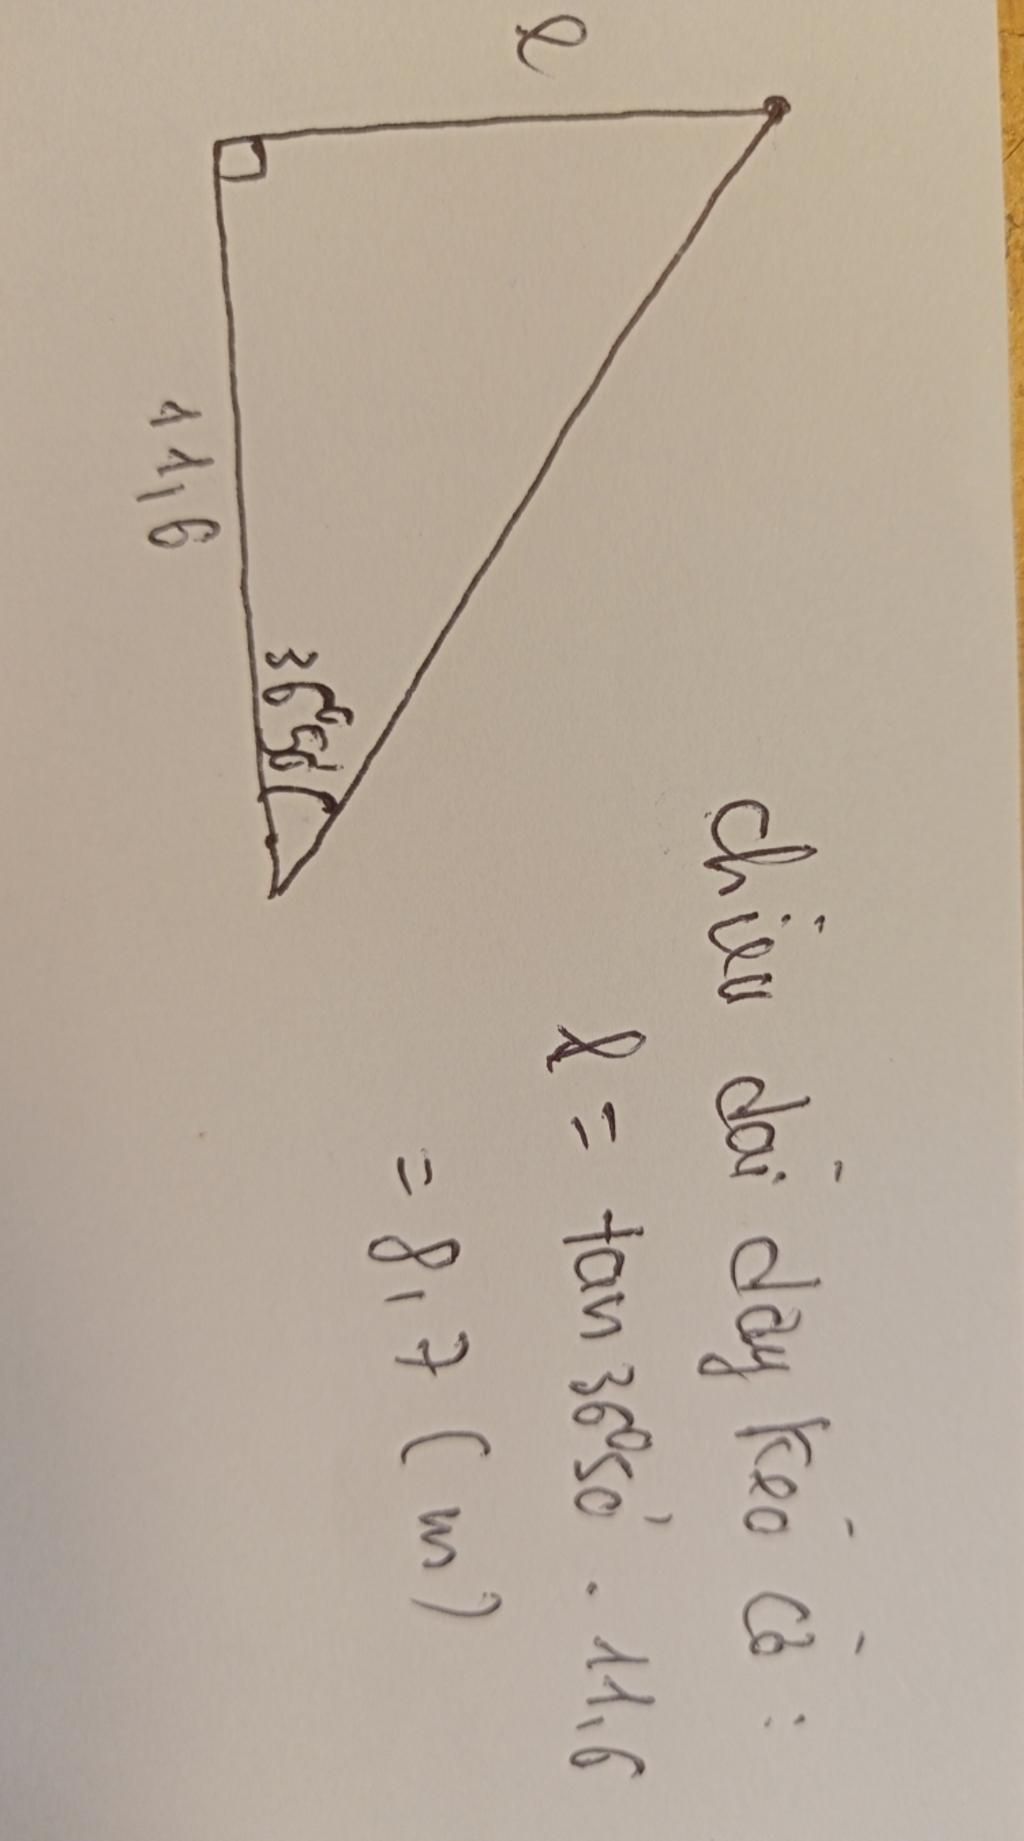 l
11,6
36°50'
chiều dài dây kéo cờ :
l = tan 36°50' . 11,6
= 8,7 (m)